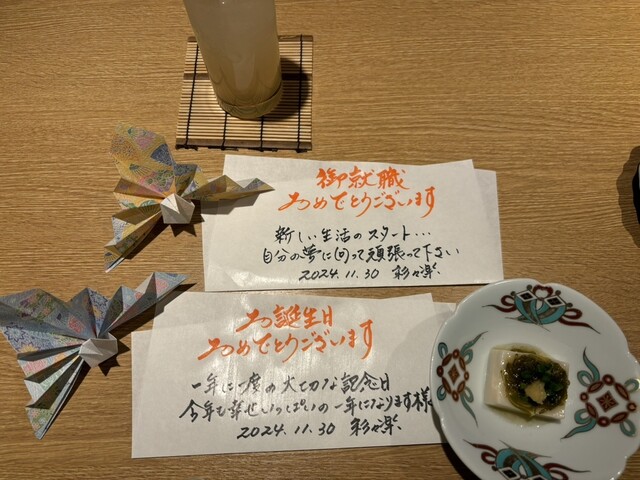 御就職
おめでとうございます
新しい生活のスタート...
自分の夢に向って頑張って下さい
2024.11.30 彩々楽
お誕生日
おめでとうございます
一年に一度の大切な記念日
今年も幸せいっぱいの一年になります様
2024.11.30 彩々楽